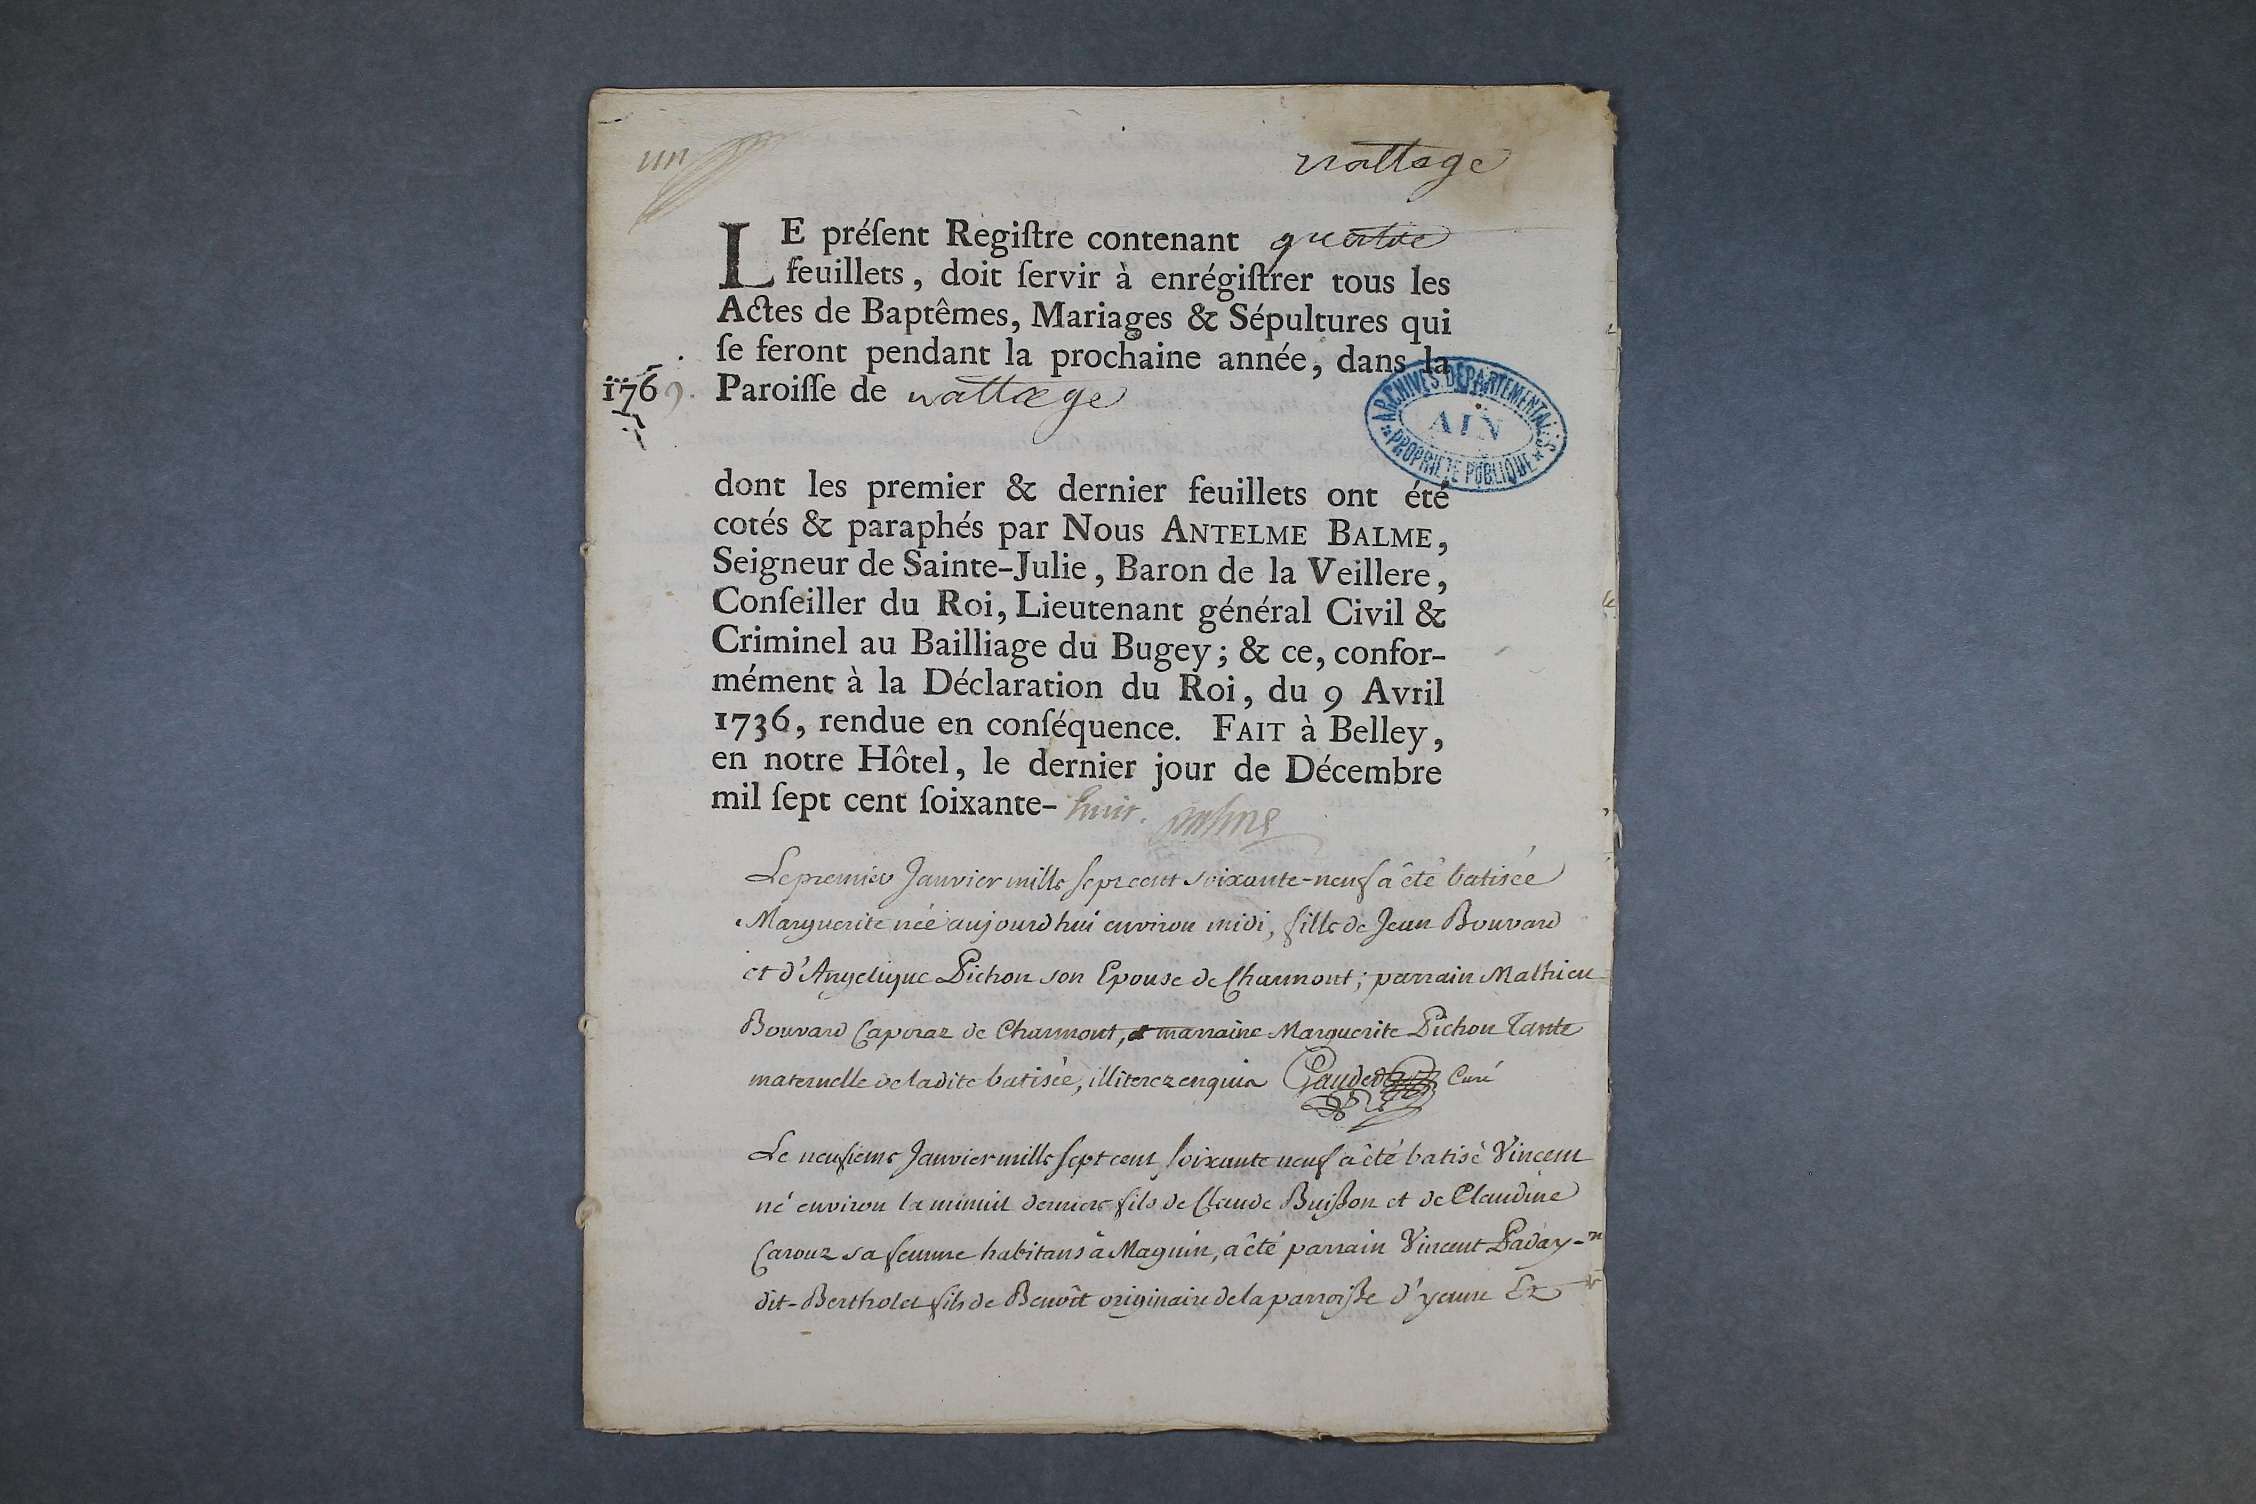 un
nattage
LE préſent Regiſtre contenant quatre
feuillets, doit ſervir à enrégiſtrer tous les
Actes de Baptêmes, Mariages & Sépultures qui
ſe feront pendant la prochaine année, dans la
1769. Paroiſſe de nattage
ARCHIVES DÉPARTEMENTALES
AIN
PROPRIÉTÉ PUBLIQUE
dont les premier & dernier feuillets ont été
cotés & paraphés par Nous ANTELME BALME,
Seigneur de Sainte-Julie, Baron de la Veillere,
Conſeiller du Roi, Lieutenant général Civil &
Criminel au Bailliage du Bugey; & ce, confor-
mément à la Déclaration du Roi, du 9 Avril
1736, rendue en conſéquence. FAIT à Belley,
en notre Hôtel, le dernier jour de Décembre
mil ſept cent ſoixante-huit. Balme
Le premier Janvier mille sept cent soixante-neuf a êté batisée
Marguerite née aujourdhui environ midi, fille de Jean Bouvard
et d'Angelique Pichon son Epouse de Charmont; parrain Mathieu
Bouvard Caporaz de Charmont, et marraine Marguerite Pichon Tante
maternelle de ladite batisée, illiterez enquis Gaudet Curé
Le neufieme Janvier mille sept cent soixante neuf a êté batisé Vincent
né environ la minuit derniere fils de Claude Buisson et de Claudine
Carouz sa femme habitans à Magnin, a êté parrain Vincent Paday-
dit-Bertholet fils de Benoît originaire de la parroisse d'yenne Et